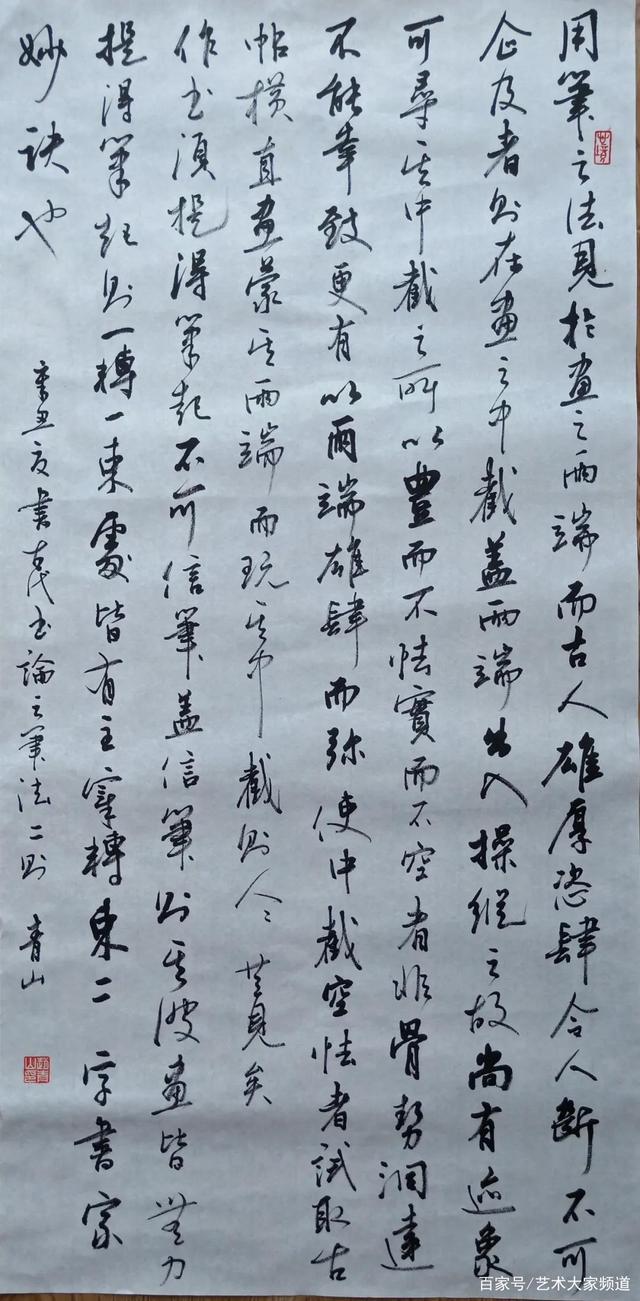 用筆之法見於畫之兩端而古人雄厚恣肆令人斷不可
企及者则在畫之中截蓋兩端出入操縱之故尚有迹象
可尋其中截之所以豊而不怯實而不空者非骨勢洞達
不能幸致更有以兩端雄肆而弥使中截空怯者試取古
帖横直畫蒙其兩端而玩其中截则人々共見矣
作书須提得筆起不可信筆蓋信筆则其波畫皆無力
提得筆起则一轉一束處皆有主宰轉束二字書家
妙訣也
辛丑夏書古代书論之筆法二则 青山
百家号/艺术大家频道